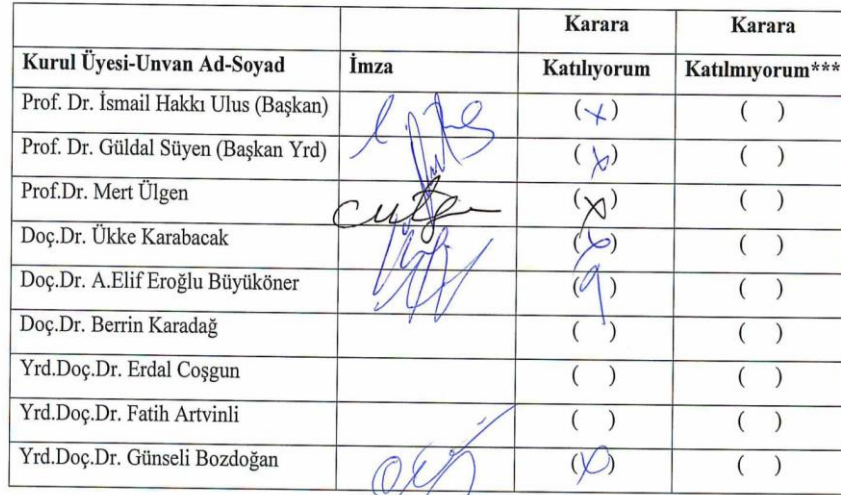 Karara Karara
Kurul Üyesi-Unvan Ad-Soyad İmza Katılıyorum Katılmıyorum***
Prof. Dr. İsmail Hakkı Ulus (Başkan) (x) ( )
Prof. Dr. Güldal Süyen (Başkan Yrd) (x) ( )
Prof.Dr. Mert Ülgen (x) ( )
Doç.Dr. Ükke Karabacak (x) ( )
Doç.Dr. A.Elif Eroğlu Büyüköner ( ) ( )
Doç.Dr. Berrin Karadağ ( ) ( )
Yrd.Doç.Dr. Erdal Coşgun ( ) ( )
Yrd.Doç.Dr. Fatih Artvinli ( ) ( )
Yrd.Doç.Dr. Günseli Bozdoğan (x) ( )